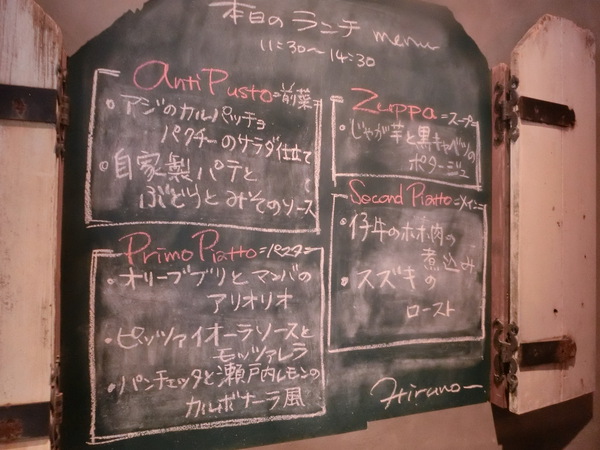 本日のランチ menu
11:30~14:30
AntiPusto=前菜
・アジのカルパッチョ
パクチーのサラダ仕立て
・自家製パテと
ぶどうと のソース
Zuppa=スープ=
・じゃが芋と黒キャベツの
ポタージュ
Primo Piatto=パスタ=
・オリーブブリと の
アリオリオ
・ピッツァイオーラソースと
モッツァレラ
・パンチェッタと瀬戸内レモンの
カルボナーラ風
Second Piatto=メイン=
・仔牛のホホ肉の
煮込み
・スズキの
ロースト
Hirano